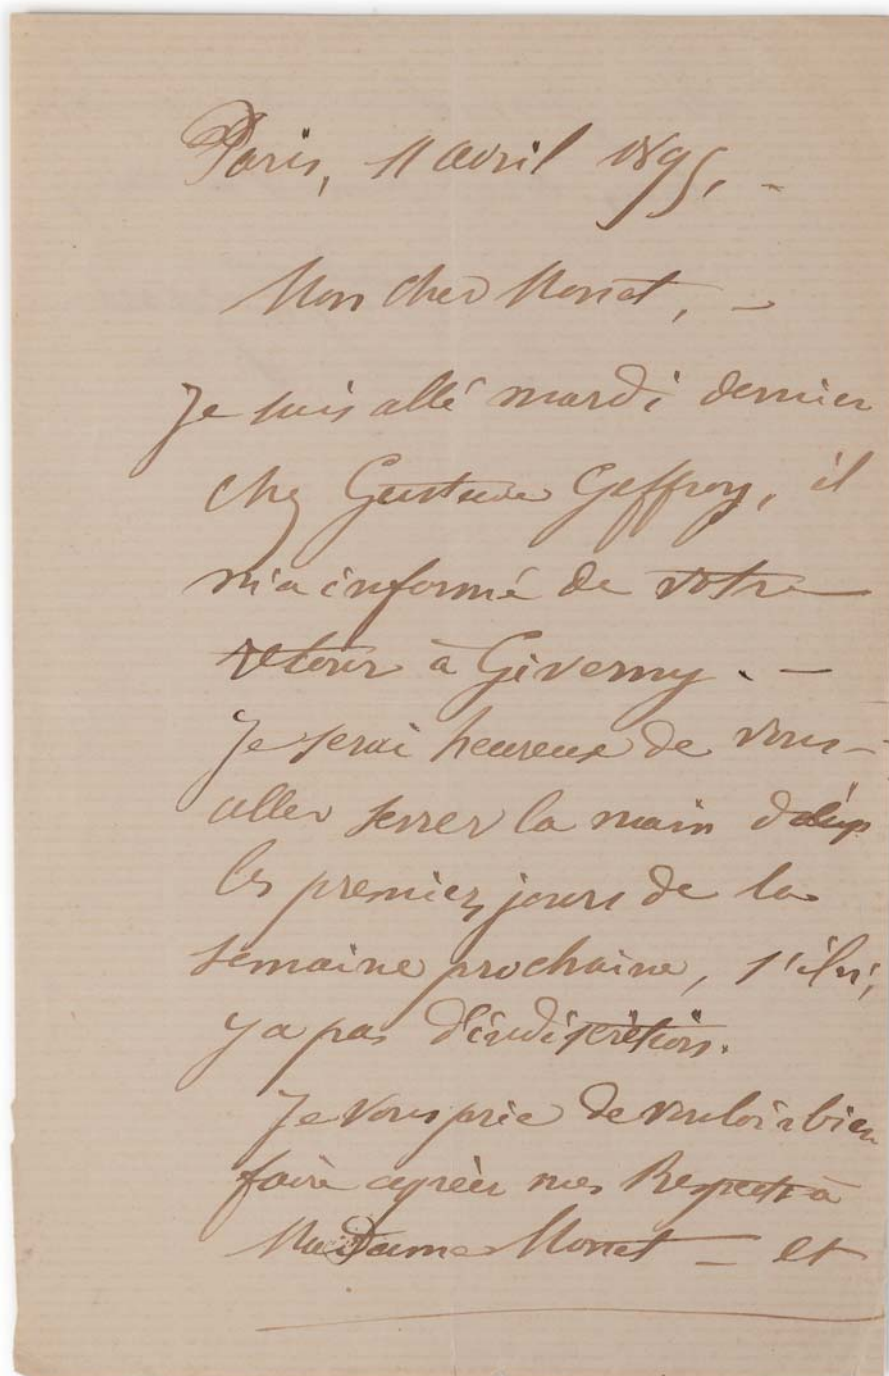 Paris, 11 avril 1895, -
Mon cher Monet, -
Je suis allé mardi dernier
chez Gustave Geffroy, il
m'a informé de votre
retour à Giverny. -
Je serai heureux de vous -
aller serrer la main
les premiers jours de la
semaine prochaine, s'il n'
y a pas d'indiscrétion.
Je vous prie de vouloir bien
faire agréer mes Respects à
Madame Monet - et